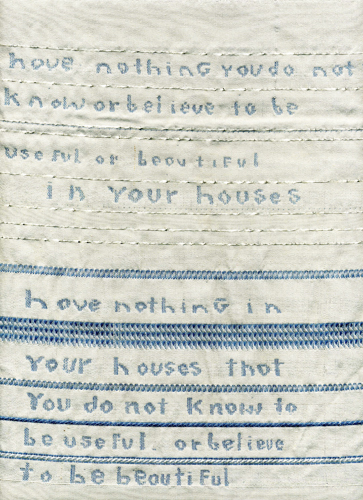 have nothing you do not
know or believe to be
useful or beautiful
in your houses
have nothing in
your houses that
You do not know to
be useful or believe
to be beautiful